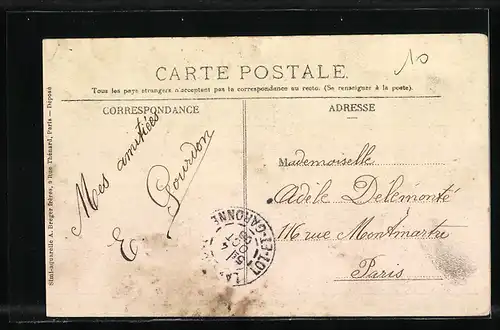 10
CARTE POSTALE.
Tous les pays étrangers n'acceptent pas la correspondance au recto. (Se renseigner à la poste).
CORRESPONDANCE
ADRESSE
Mes amitiées
E. Gourdon
Mademoiselle
Adèle Delemonté
116 rue Montmartre
Paris
LOT-ET-GARONNE
Simi-aquarelle A. Breger frères, 9 Rue Thénard, Paris — Déposé